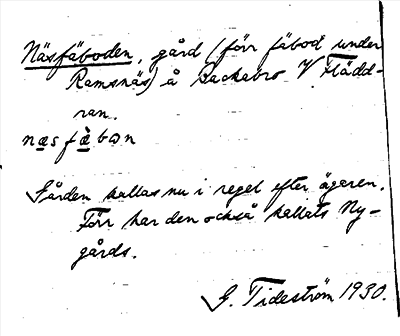 Näsfäboden, gård (förr fäbod under
Ramsnäs) å Backabro V Flädd-
ran.
næs fæ̀ bɷn
Gården kallas nu i regel efter ägaren.
Förr har den också kallats Ny-
gårds.
G. Tideström 1930.